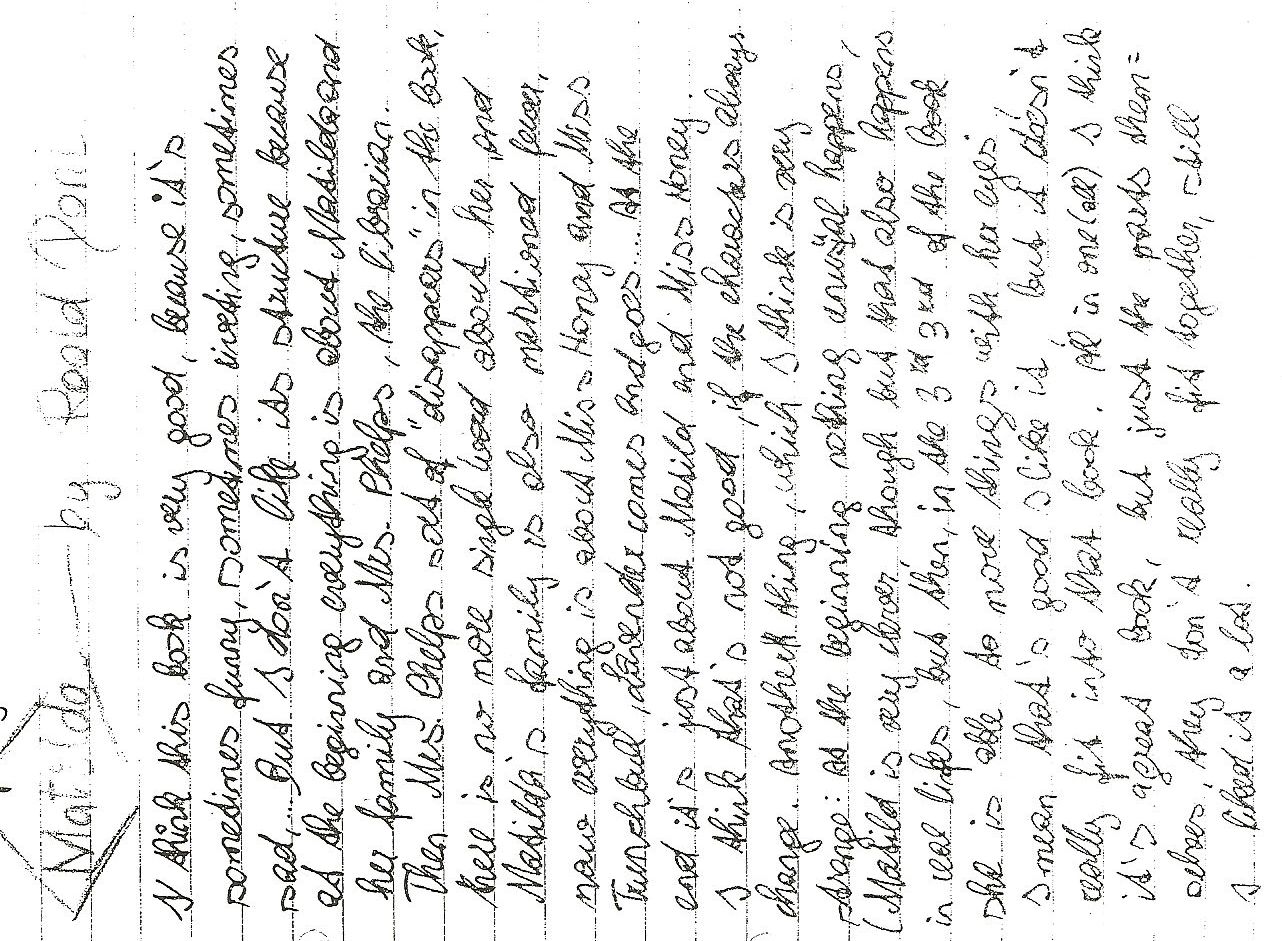 Matilda by Roald Penl
I think this book is very good, because it's
sometimes funny, sometimes inveting, sometimes
sad,... But I don't like its structure because
at the beginning everything is about Matilda and
her family and Mrs. Phelps, the librarian.
Then Mrs. Phelps sort of "disappears" in the book,
there is no more single word about her, and
Matilda's family is also mentioned fewer,
now everything is about Miss Honey and Miss
Trunchbull, Lavender comes and goes... At the
end it's just about Matild and Miss Honey.
I think that's not good, if the characters always
change. Another thing, which I think is very
strange: At the beginning nothing unusual happens,
(Matild is very clever though but that also happens
in real life), but then, in the 3rd 3rd of the book
she is able to move things with her eyes.
I mean that's good I like it but it doesn't
really fit into that book. All in one (all) I think
it's a great book, but just the parts them=
selves, they don't really fit together, still
I liked it a lot.